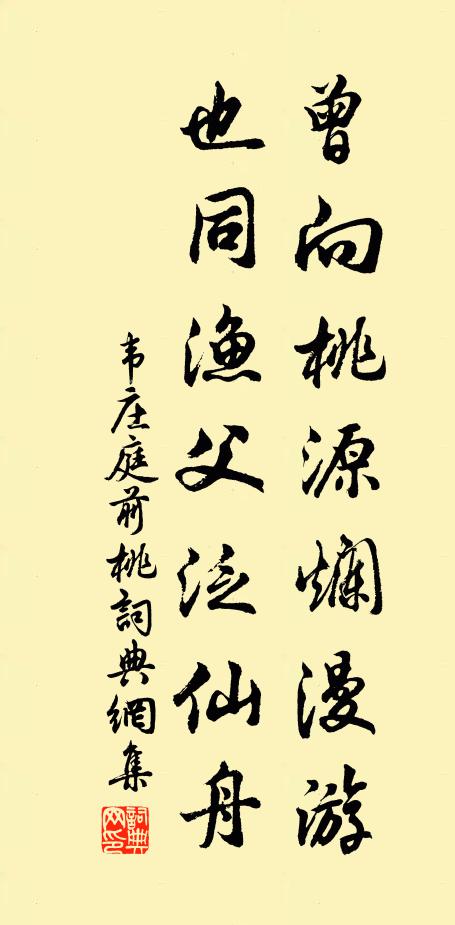 曾向桃源爛漫游
也同渔父泛仙舟
韦庄庭前桃詞典網集
詞典
网印